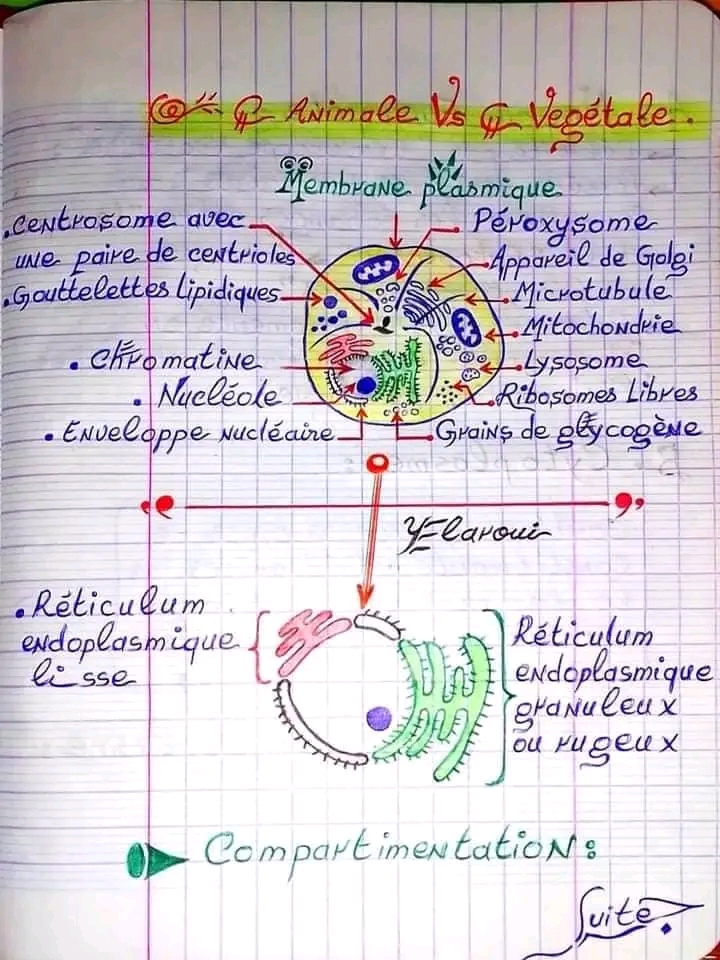 Animale Vs Vegétale.
Membrane plasmique
.Centrosome avec
une paire de centrioles
.Gouttelettes Lipidiques
. Chromatine
. Nucléole
. Enveloppe nucléaire
Péroxysome
Appareil de Golgi
Microtubule
Mitochondrie
Lysosome
Ribosomes Libres
Grains de glycogène
. Réticulum
endoplasmique
lisse
Réticulum
endoplasmique
granuleux
ou rugeux
Compartimentation :
Suite